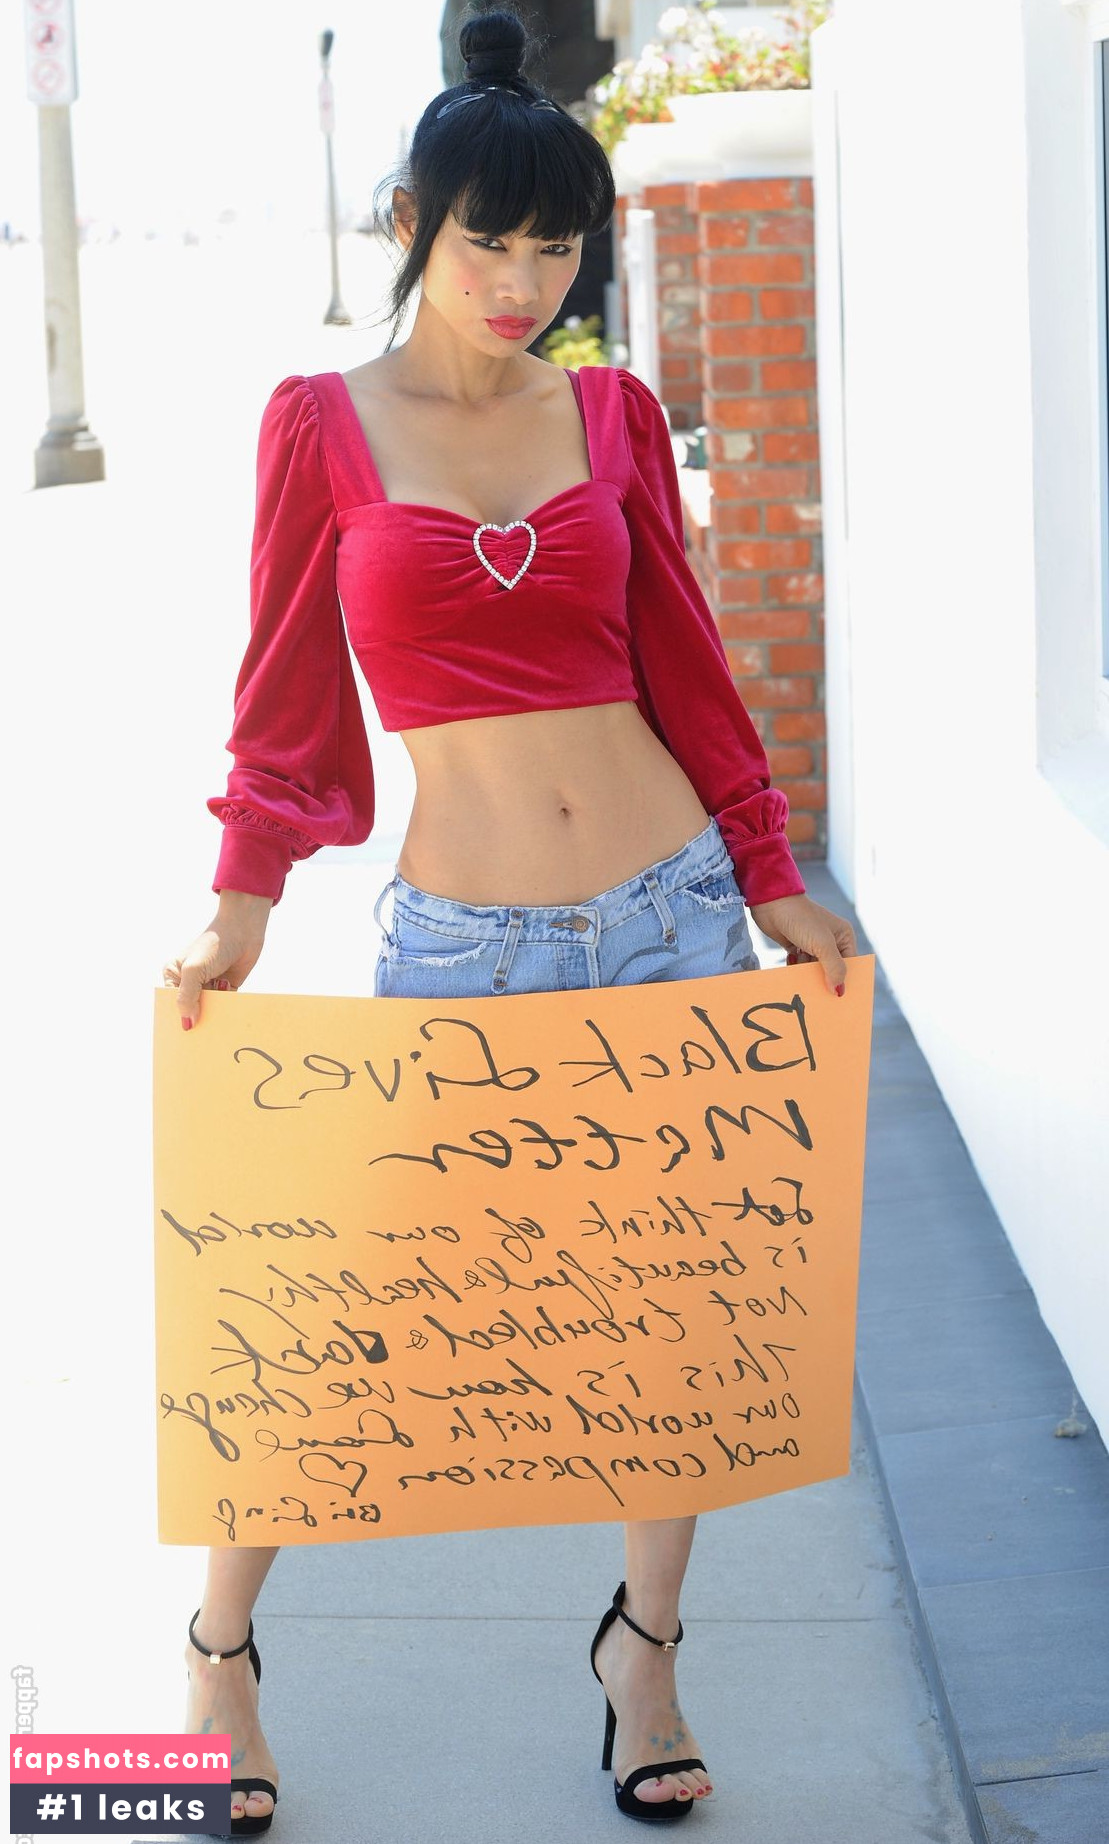 Black Lives
Matter
Let think of our world
is beautiful & healthy
Not troubled & dark
This is how we change
our world with Love
and compassion ♡
Bai Ling
fapshots.com
#1 leaks